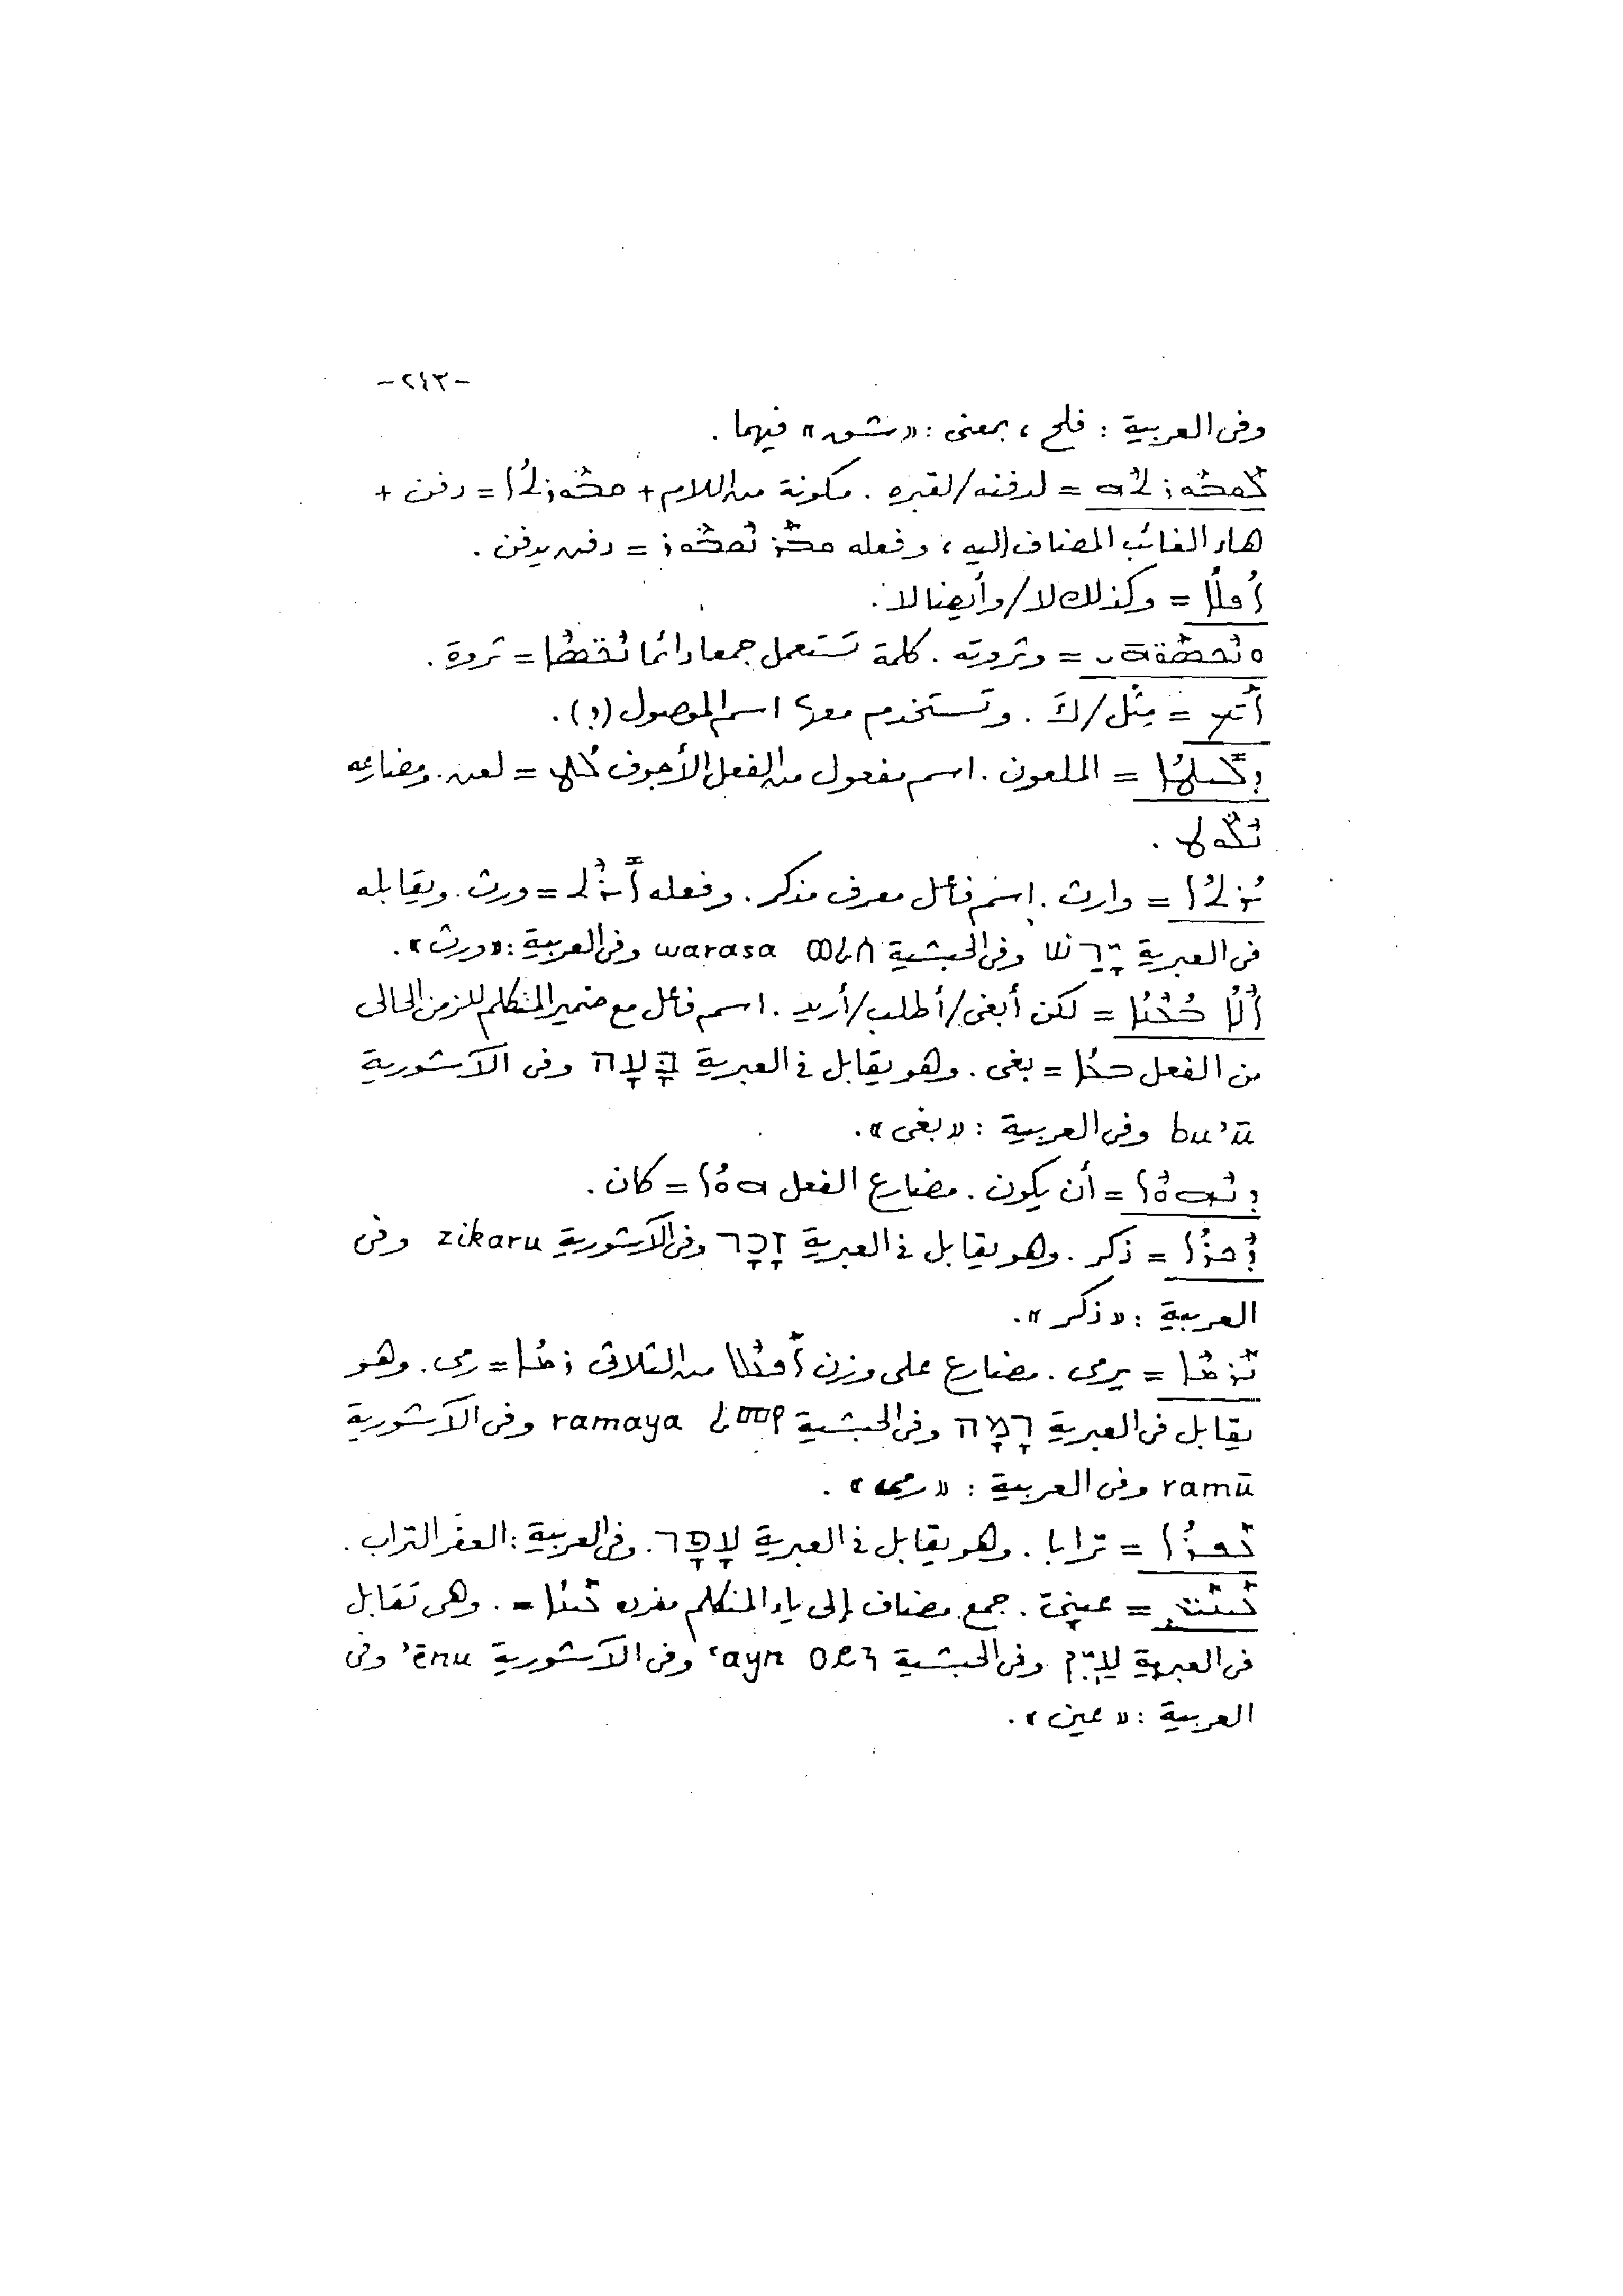 -٢٤٣-
وفى العربية : فلح ، بمعنى : «شق» فيهما .
ܠܩܒܘܪܬܗ = لدفنه/لقبره . مكونة من اللام + ܩܒܘܪܬܐ = دفن +
هاء الغائب المضاف إليه ، وفعله ܩܒܪ ܢܩܒܘܪ = دفن يدفن .
ܐܦܠܐ = وكذلك لا/وأيضا لا .
ܘܢܟܣܘܗܝ = وثروته . كلمة تستعمل جمعا دائما ܢܟܣܐ = ثروة .
ܐܝܟ = مِثل/كَ . وتستخدم معها اسم الموصول (ܕ) .
ܕܠܝܛܐ = الملعون . اسم مفعول من الفعل الأجوف ܠܛ = لعن . ومضارعه
ܢܠܘܛ .
ܝܪܬܐ = وارث . اسم فاعل معرف مذكر . وفعله ܐܝܪܬ = ورث . ويقابله
فى العبرية יָרַשׁ وفى الحبشية ወረሰ warasa وفى العربية : «ورث» .
ܐܠܐ ܒܥܝܢܐ = لكن أبغى/أطلب/أريد . اسم فاعل مع ضمير المتكلم للزمن الحالى
من الفعل ܒܥܐ = بغى . وهو يقابل فى العبرية בָּעָה وفى الآشورية
bu'ū وفى العربية : «بغى» .
ܕܢܗܘܐ = أن يكون . مضارع الفعل ܗܘܐ = كان .
ܕܟܪܐ = ذكر . وهو يقابل فى العبرية זָכָר وفى الآشورية zikaru وفى
العربية : «ذكر» .
ܢܪܡܐ = يرمى . مضارع على وزن ܐܦܥܠ من الثلاثى ܪܡܐ = رمى . وهو
يقابل فى العبرية רָמָה وفى الحبشية ረመየ ramaya وفى الآشورية
ramū وفى العربية : «رمى» .
ܥܦܪܐ = ترابا . وهو يقابل فى العبرية עָפָר . وفى العربية : العفَر التراب .
ܥܝܢܝ = عينىّ . جمع مضاف إلى ياء المتكلم مفرده ܥܝܢܐ = . وهى تقابل
فى العبرية עַיִן وفى الحبشية ዐይን ʿayn وفى الآشورية ʾēnu وفى
العربية : «عين» .